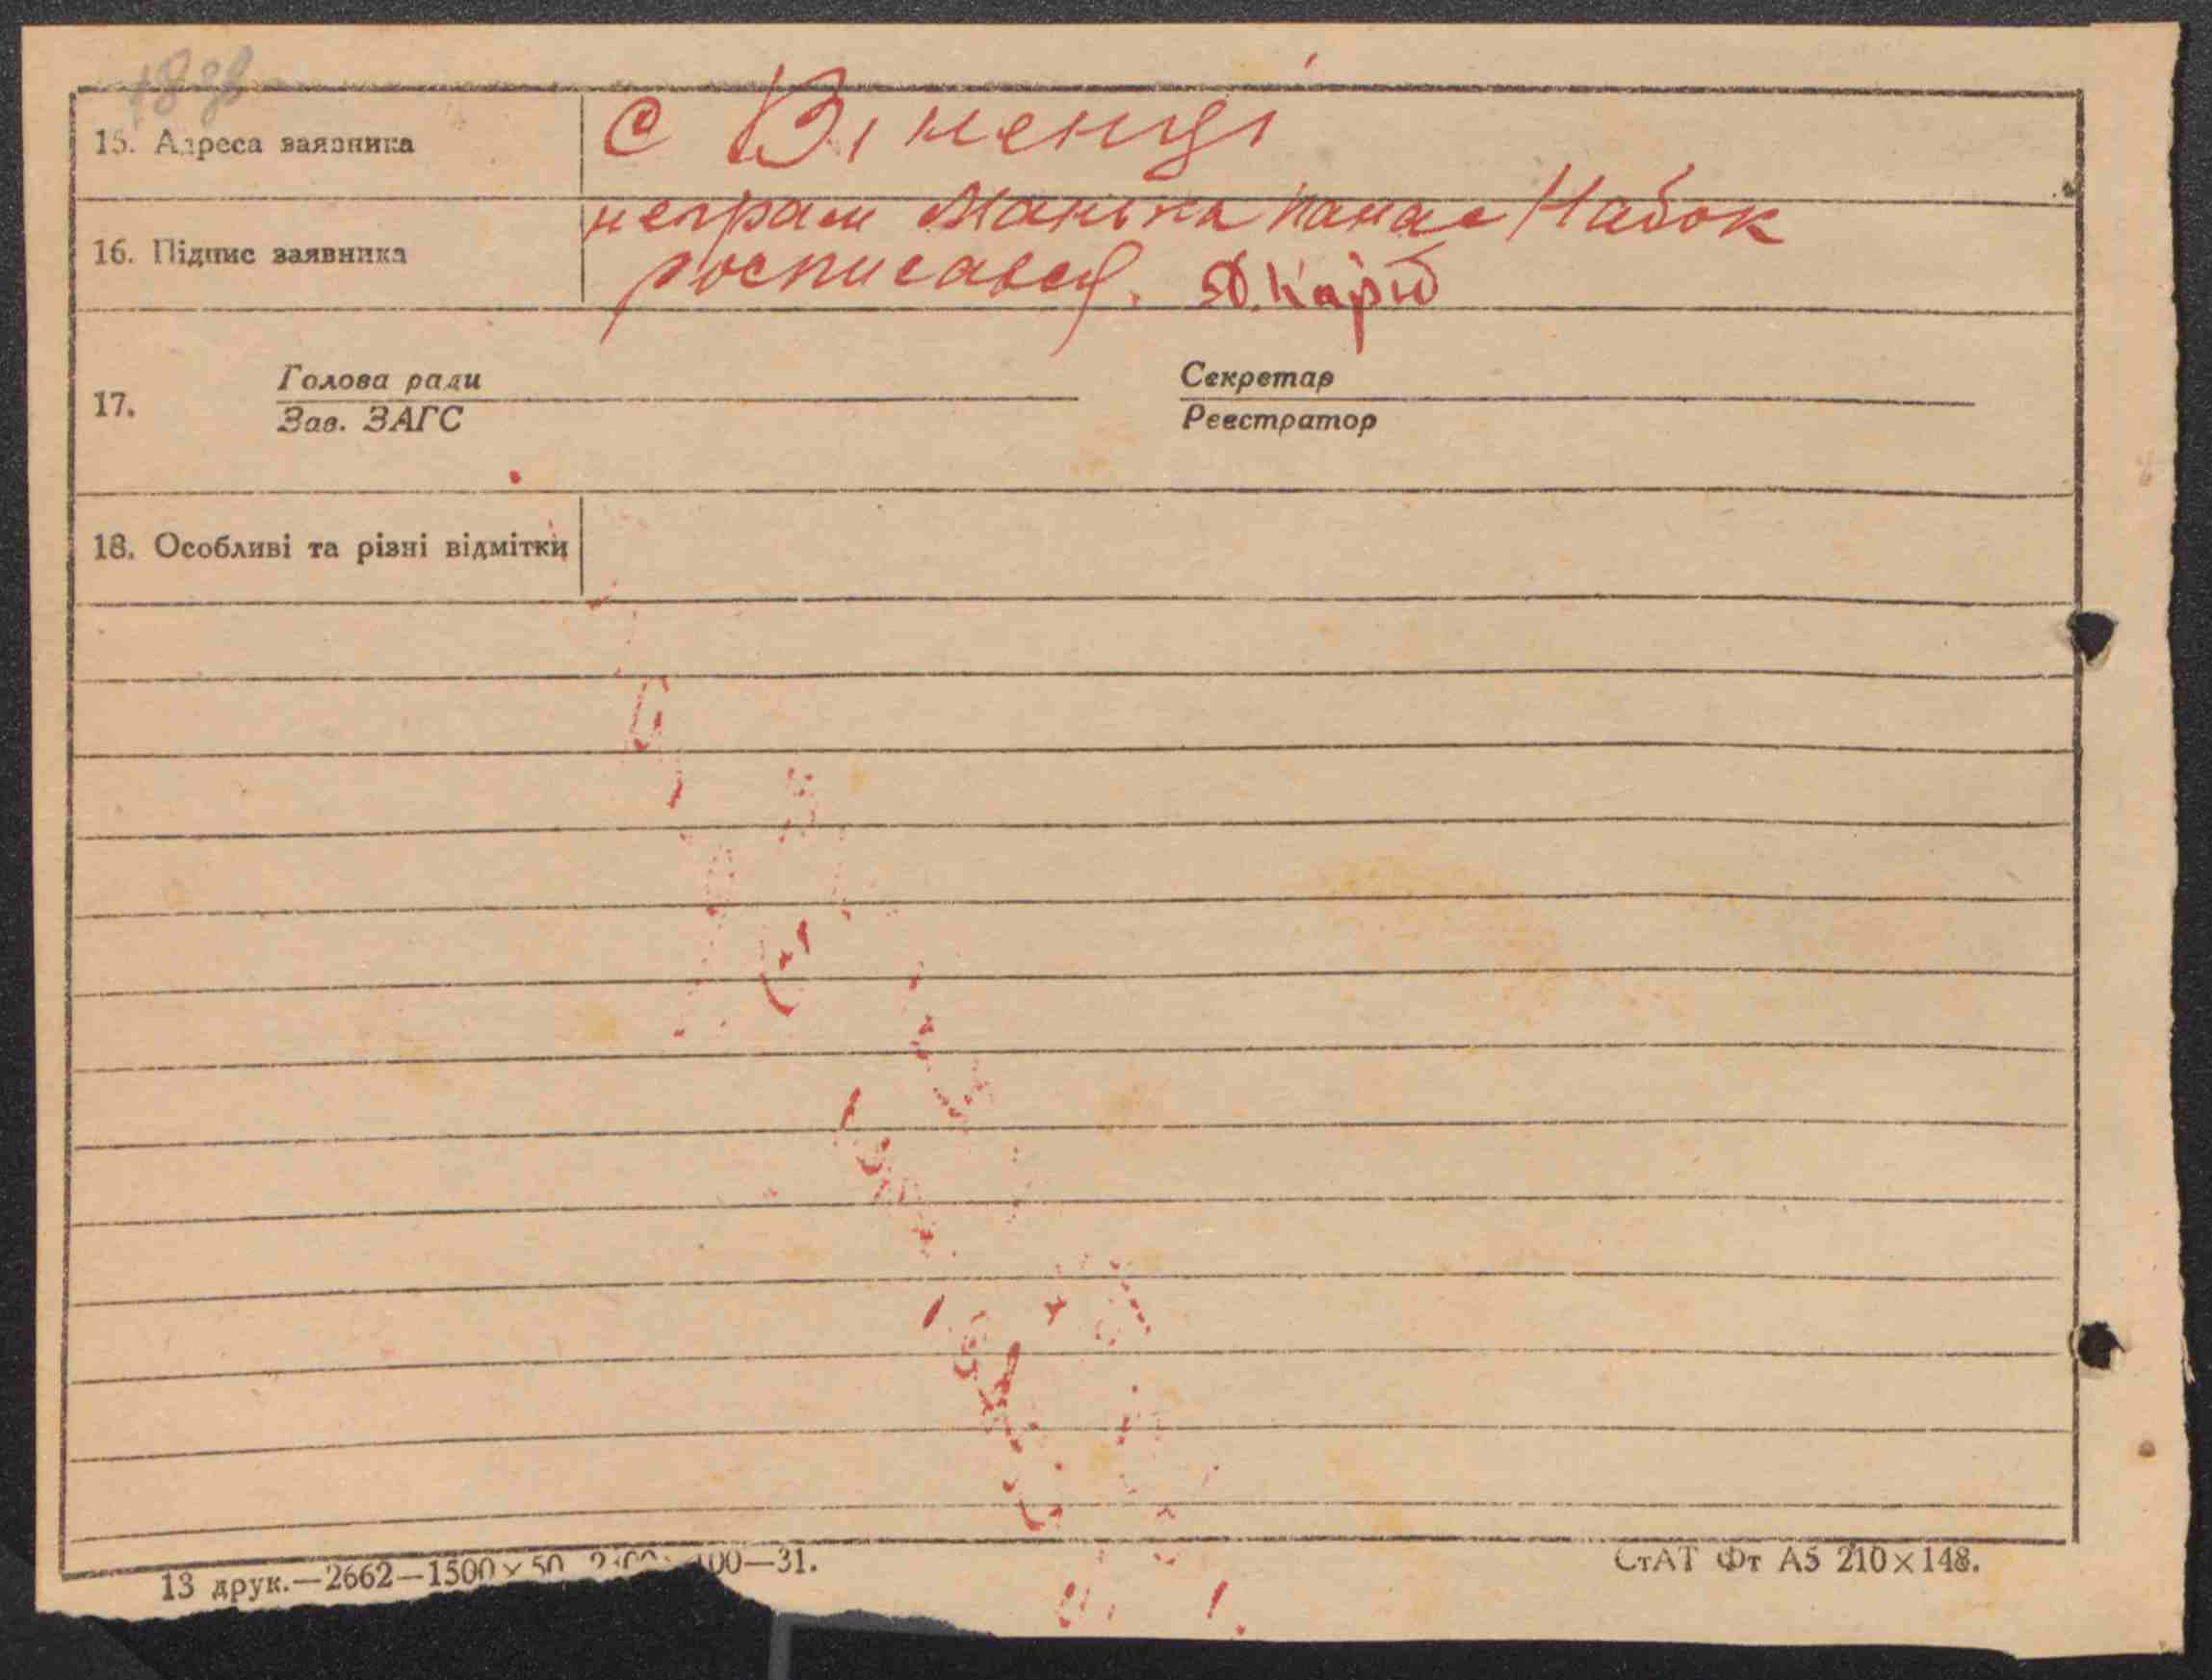 15. Адреса заявника
с Віненці
16. Підпис заявника
неграм Манька Панас Набок
росписався.
17.
Голова ради
Зав. ЗАГС
Секретар
Реєстратор
18. Особливі та різні відмітки
13 друк.—2662—1500×50
00—31.
СтАТ Фт А5 210×148.